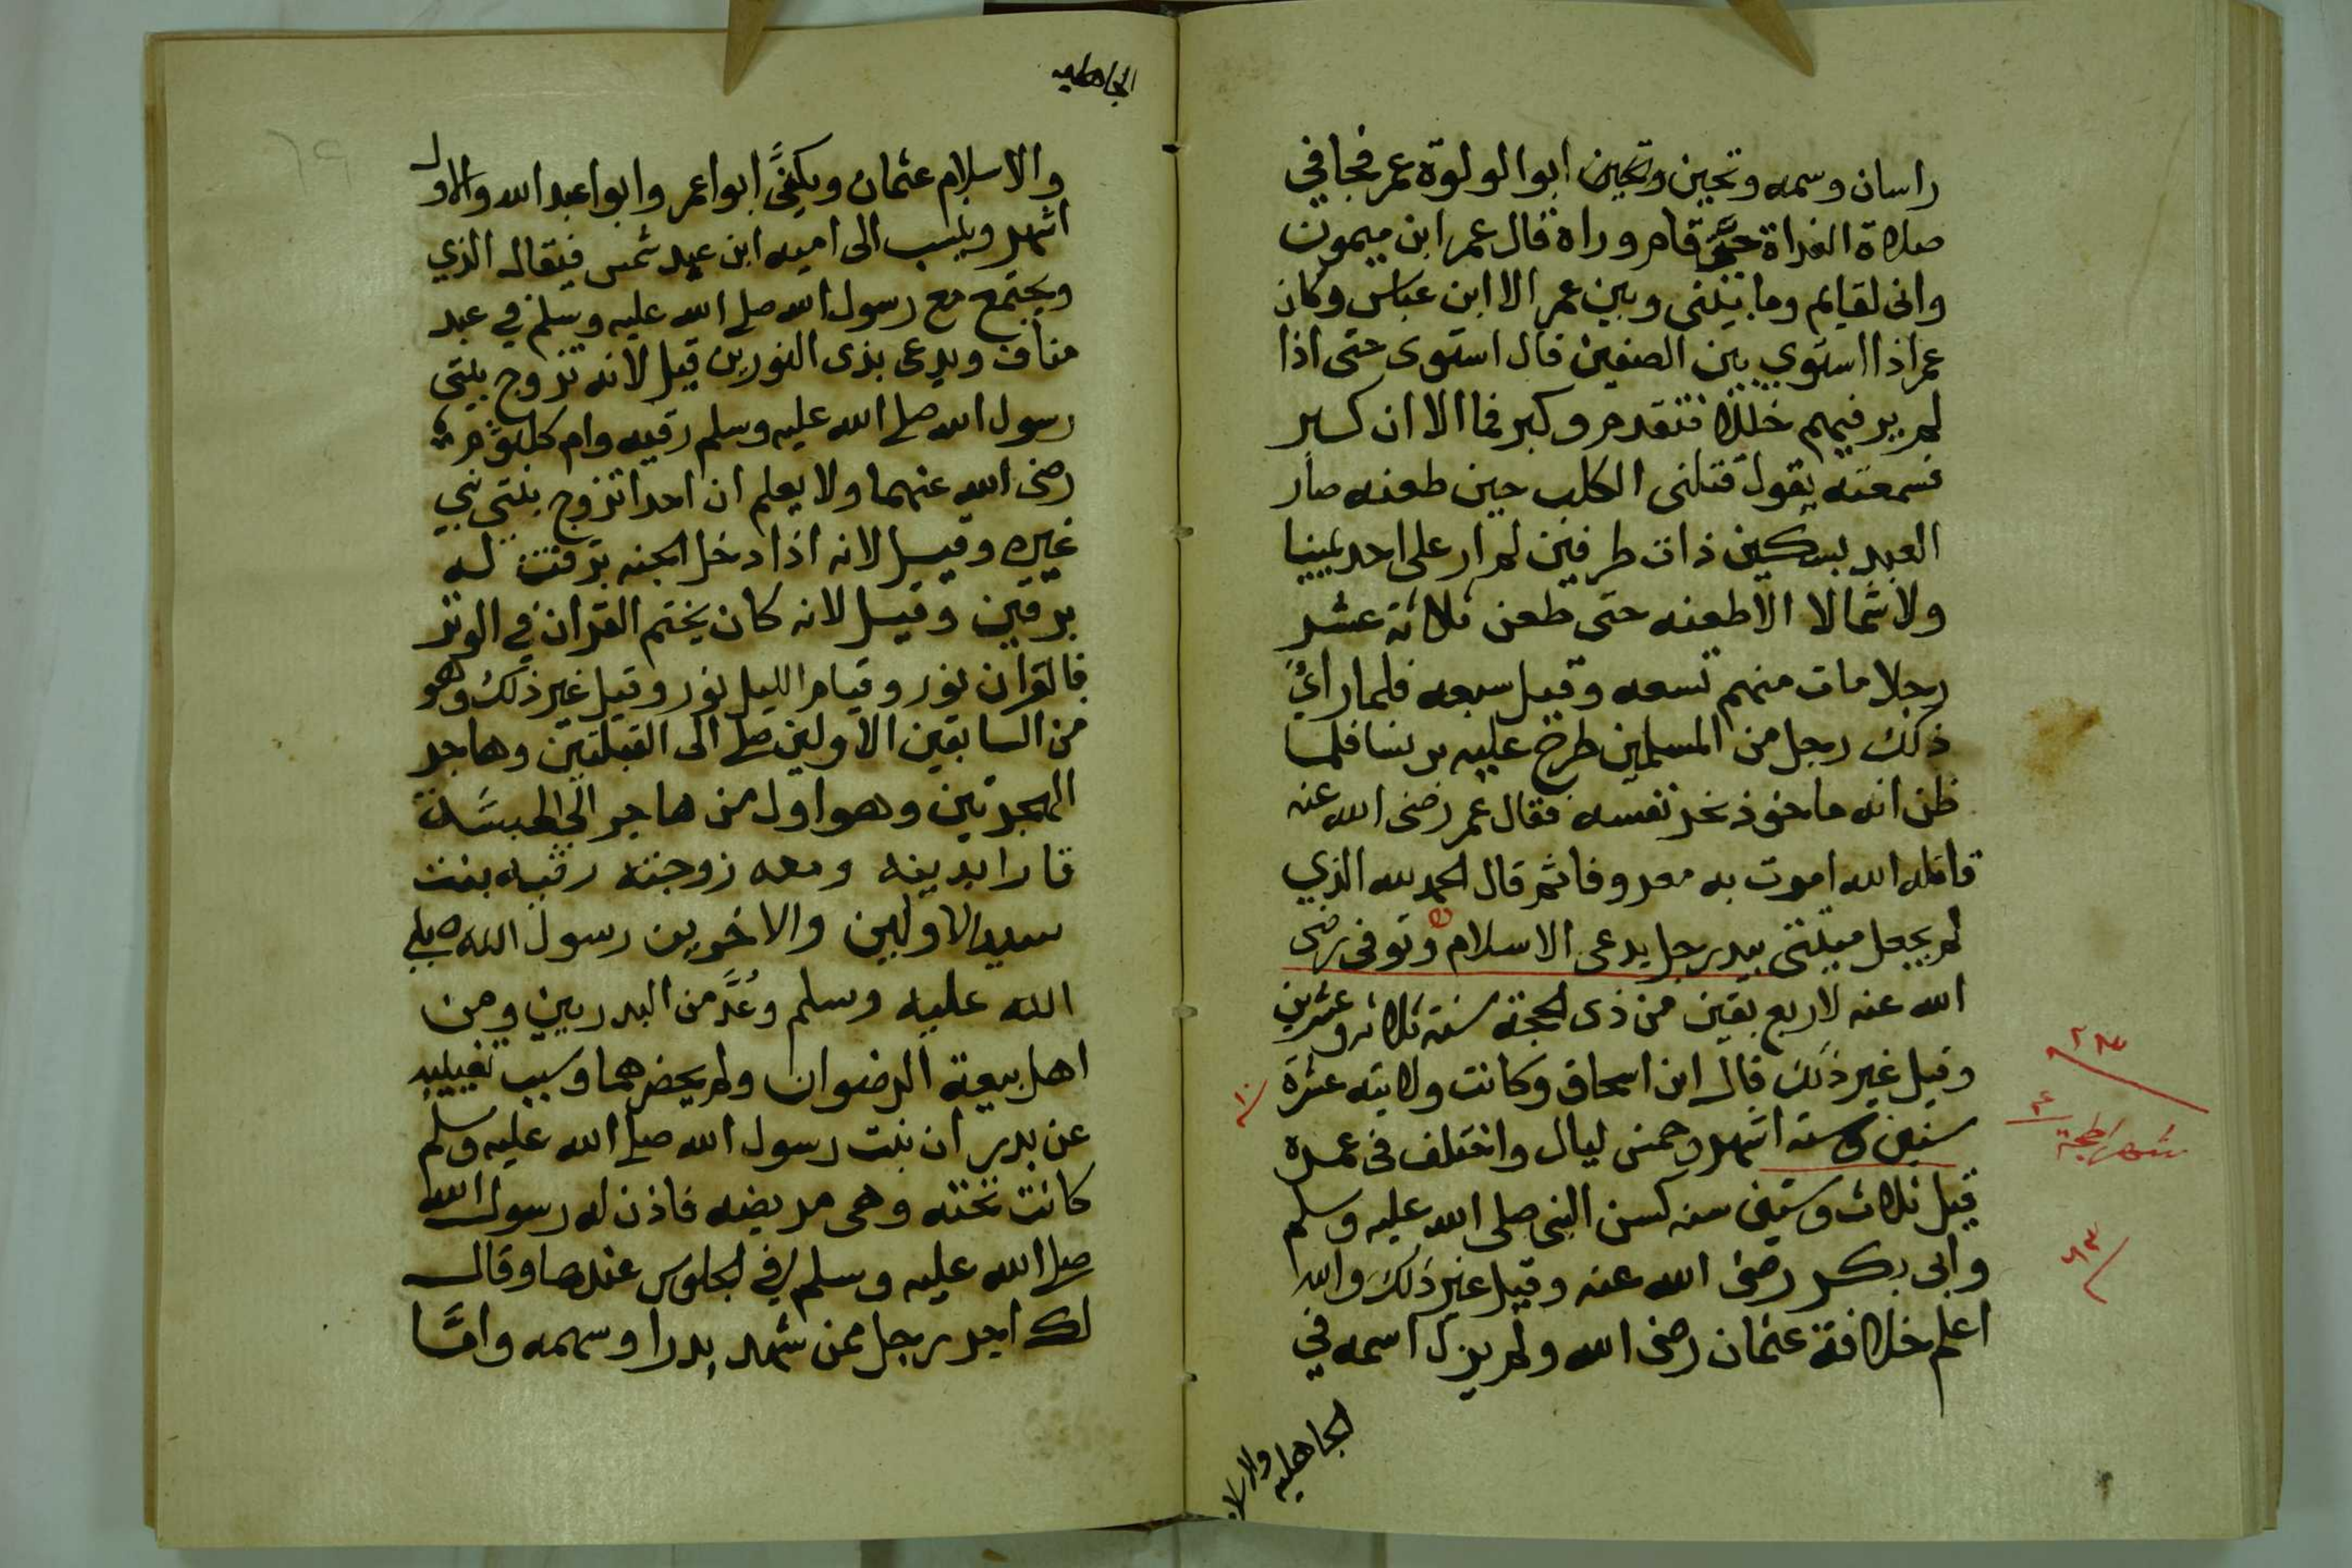 راسان وسمه وتحين وتحين ابوا لولوة عمر فجا في
صلاة الغداة حتى قام وراة قال عمر ابن ميمون
وانى لقايم وما بينى وبين عمر الا ابن عباس وكان
عمر اذا استوي بين الصفين قال استوى حتى اذا
لم ير فيهم خللا فتقدم وكبر فما الا ان كبر
فسمعته يقول قتلنى الكلب حين طعنه صار
العبد بسكين ذات طرفين لم ار على احد يمينا
ولا شمالا الا طعنه حتى طعن ثلاثة عشر
رجلا مات منهم تسعه وقيل سبعه فلما راى
ذلك رجل من المسلمين طرح عليه برنسا فلما
ظن انه ماخوذ نحر نفسه فقال عمر رضى الله عنه
قاتله الله اموت به معروفا ثم قال الحمد لله الذي
لم يجعل ميتتى بيد رجل يدعى الاسلام وتوفى رضى
الله عنه لاربع بقين من ذى الحجة سنة ثلاثه وعشرين
وقيل غير ذلك قال ابن اسحاق وكانت ولايته عشرة
سنين وسته اشهر وخمس ليال واختلف فى عمره
قيل ثلاث وستين سنه كسن النبى صلى الله عليه وسلم
وابى بكر رضى الله عنه وقيل غير ذلك والله
اعلم خلافة عثمان رضى الله ولم يزل اسمه في
الجاهليه والا
٢٣
٦٣
الجاهليه
٦٩
والاسلام عثمان ويكنًى ابوا عمر وابوا عبد الله والاول
اشهر وينسب الى اميه ابن عبد شمس فيقال الذي
ويجتمع مع رسول الله صلى الله عليه وسلم في عبد
مناف ويدعى بذى النورين قيل لانه تزوج بنتى
رسول الله صلى الله عليه وسلم رقيه وام كلثوم
رضى الله عنهما ولا يعلم ان احدا تزوج بنتي نبي
غيره وقيل لانه اذا دخل الجنه برقت له
برقتين وقيل لانه كان يختم القران في الوتر
فالقران نور وقيام الليل نور وقيل غير ذلك وهو
من السابقين الاولين صلى الى القبلتين وهاجر
الهجرتين وهو اول من هاجر الى الحبشة
قارا بدينه ومعه زوجته رقيه بنت
سيد الاولين والاخرين رسول الله صلى
الله عليه وسلم وعُدَّ من البدريين ومن
اهل بيعة الرضوان ولم يحضرهما وسبب تغيبه
عن بدر ان بنت رسول الله صلى الله عليه وسلم
كانت تحته وهى مريضه فاذن له رسول الله
صلى الله عليه وسلم في الجلوس عندها وقال
لك اجر رجل ممن شهد بدرا وسهمه وامَّا